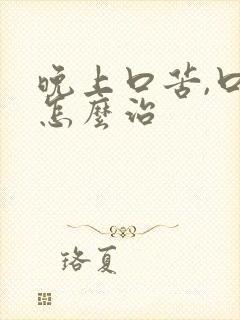 晚上口苦,口
怎麼治
珞夏